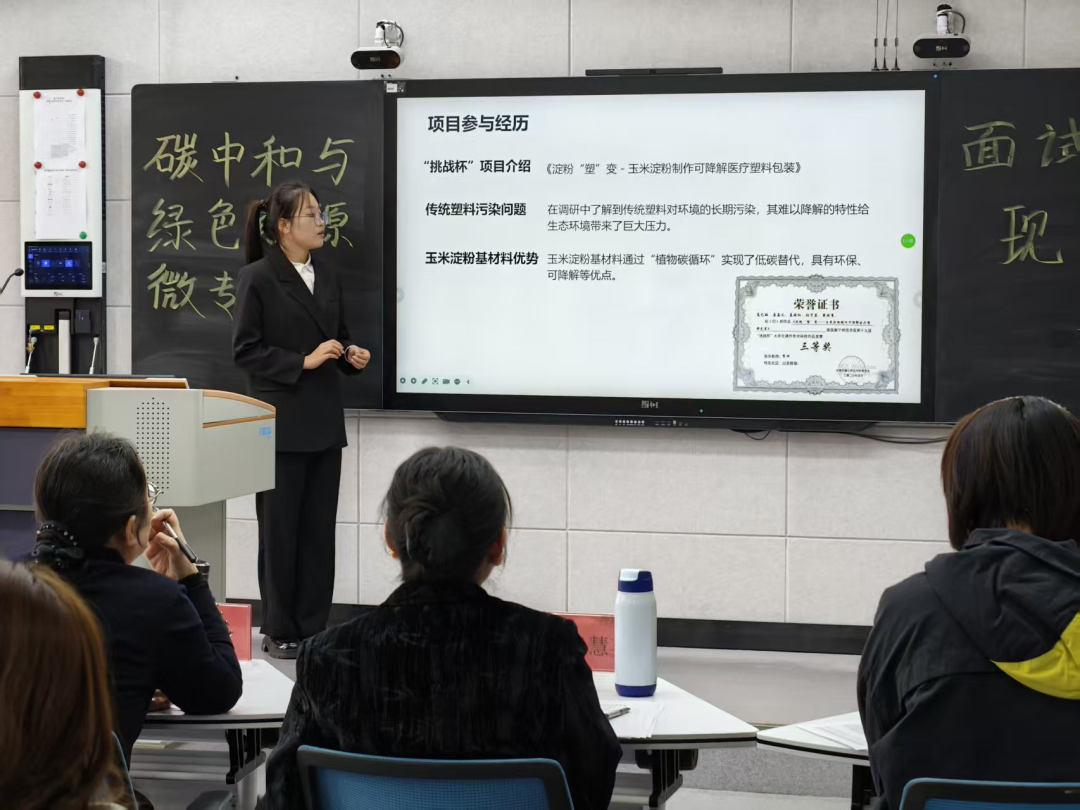 碳中和与
绿色 源
微专
项目参与经历
“挑战杯”项目介绍 《淀粉“塑”变 - 玉米淀粉制作可降解医疗塑料包装》
传统塑料污染问题 在调研中了解到传统塑料对环境的长期污染，其难以降解的特性给
生态环境带来了巨大压力。
玉米淀粉基材料优势 玉米淀粉基材料通过“植物碳循环”实现了低碳替代，具有环保、
可降解等优点。
荣誉证书
三等奖
面试
现
慧